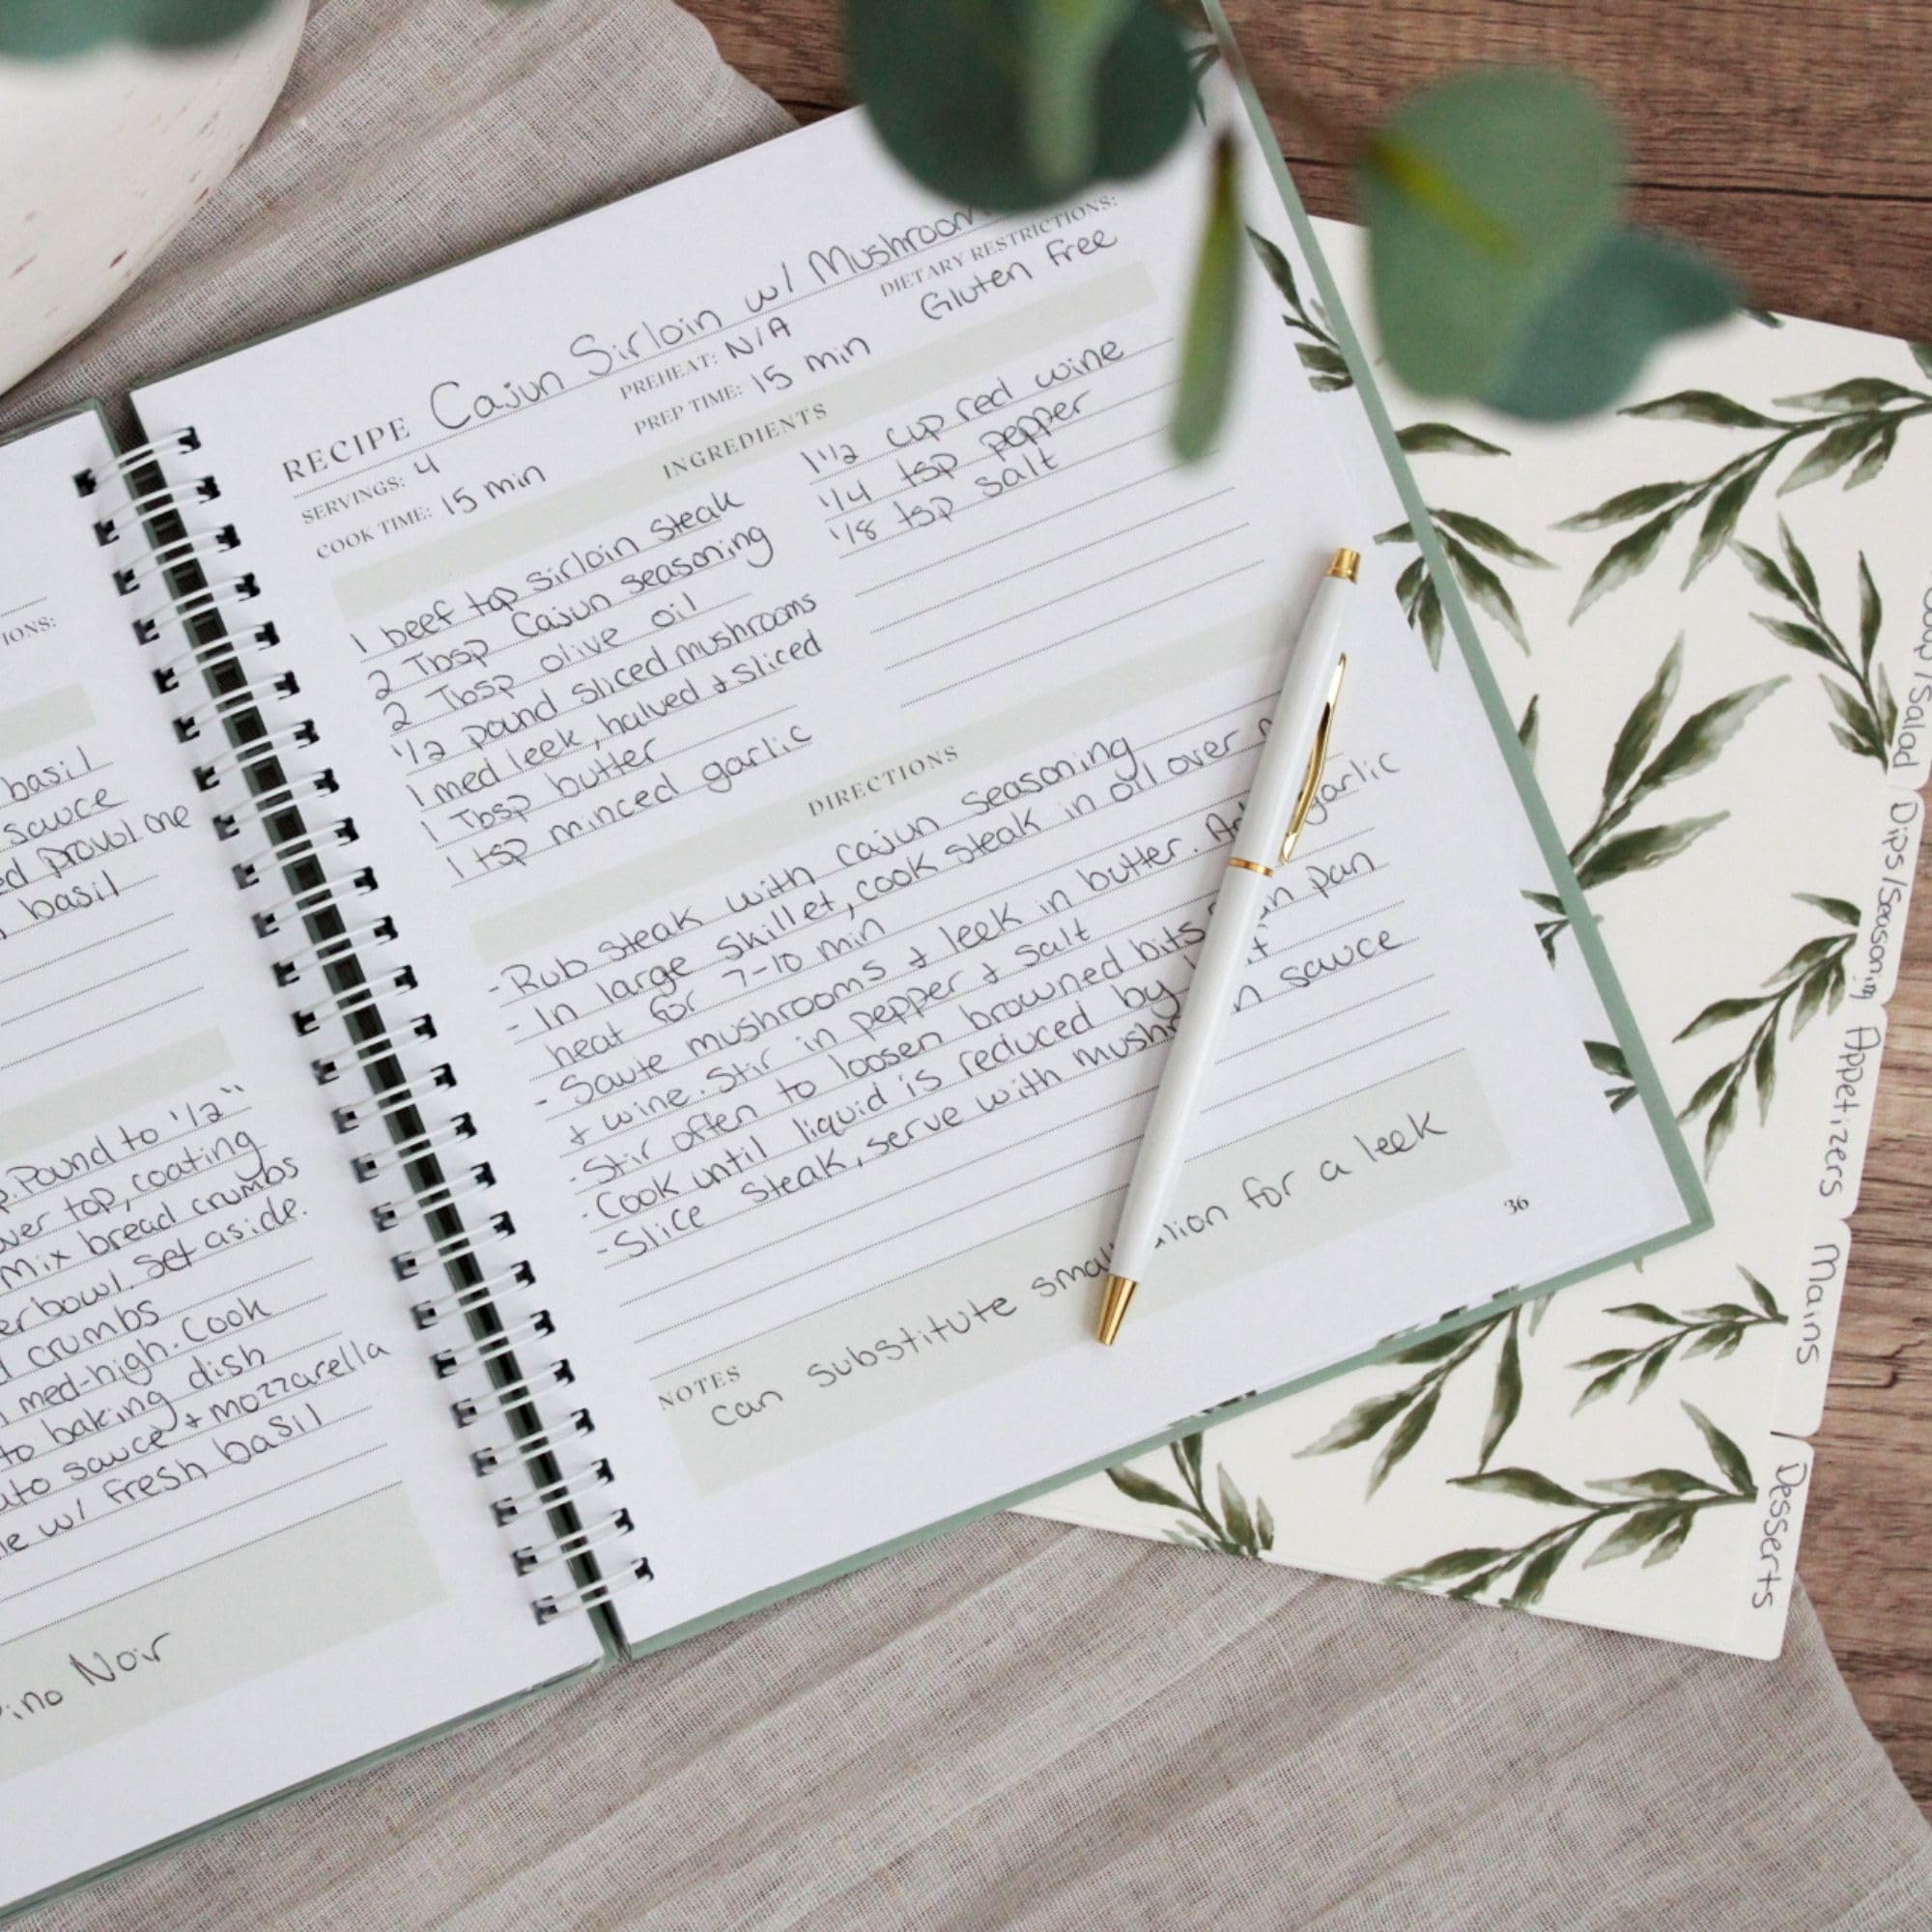 IONS:
basil
sauce
provolone
basil
Pound to 1/2"
top, coating
Mix bread crumbs
bowl. Set aside.
crumbs
med-high. Cook
to baking dish
sauce + mozzarella
w/ fresh basil
Noir
RECIPE Cajun Sirloin w/ Mushroom
SERVINGS: 4
PREHEAT: N/A
DIETARY RESTRICTIONS:
COOK TIME: 15 min
PREP TIME: 15 min
Gluten Free
INGREDIENTS
1 beef top sirloin steak
2 Tbsp Cajun seasoning
2 Tbsp olive oil
1/2 pound sliced mushrooms
1 med leek, halved + sliced
1 Tbsp butter
1 tsp minced garlic
1 1/2 cup red wine
1/4 tsp pepper
1/8 tsp salt
DIRECTIONS
- Rub steak with cajun seasoning
- In large skillet, cook steak in oil over
heat for 7-10 min
- Saute mushrooms + leek in butter. garlic
+ wine. Stir in pepper + salt
- Stir often to loosen browned bits pan
- Cook until liquid is reduced by
- Slice steak, serve with sauce
NOTES
Can substitute for a leek
36
Soup/Salad
Dips/Seasoning
Appetizers
Mains
Desserts